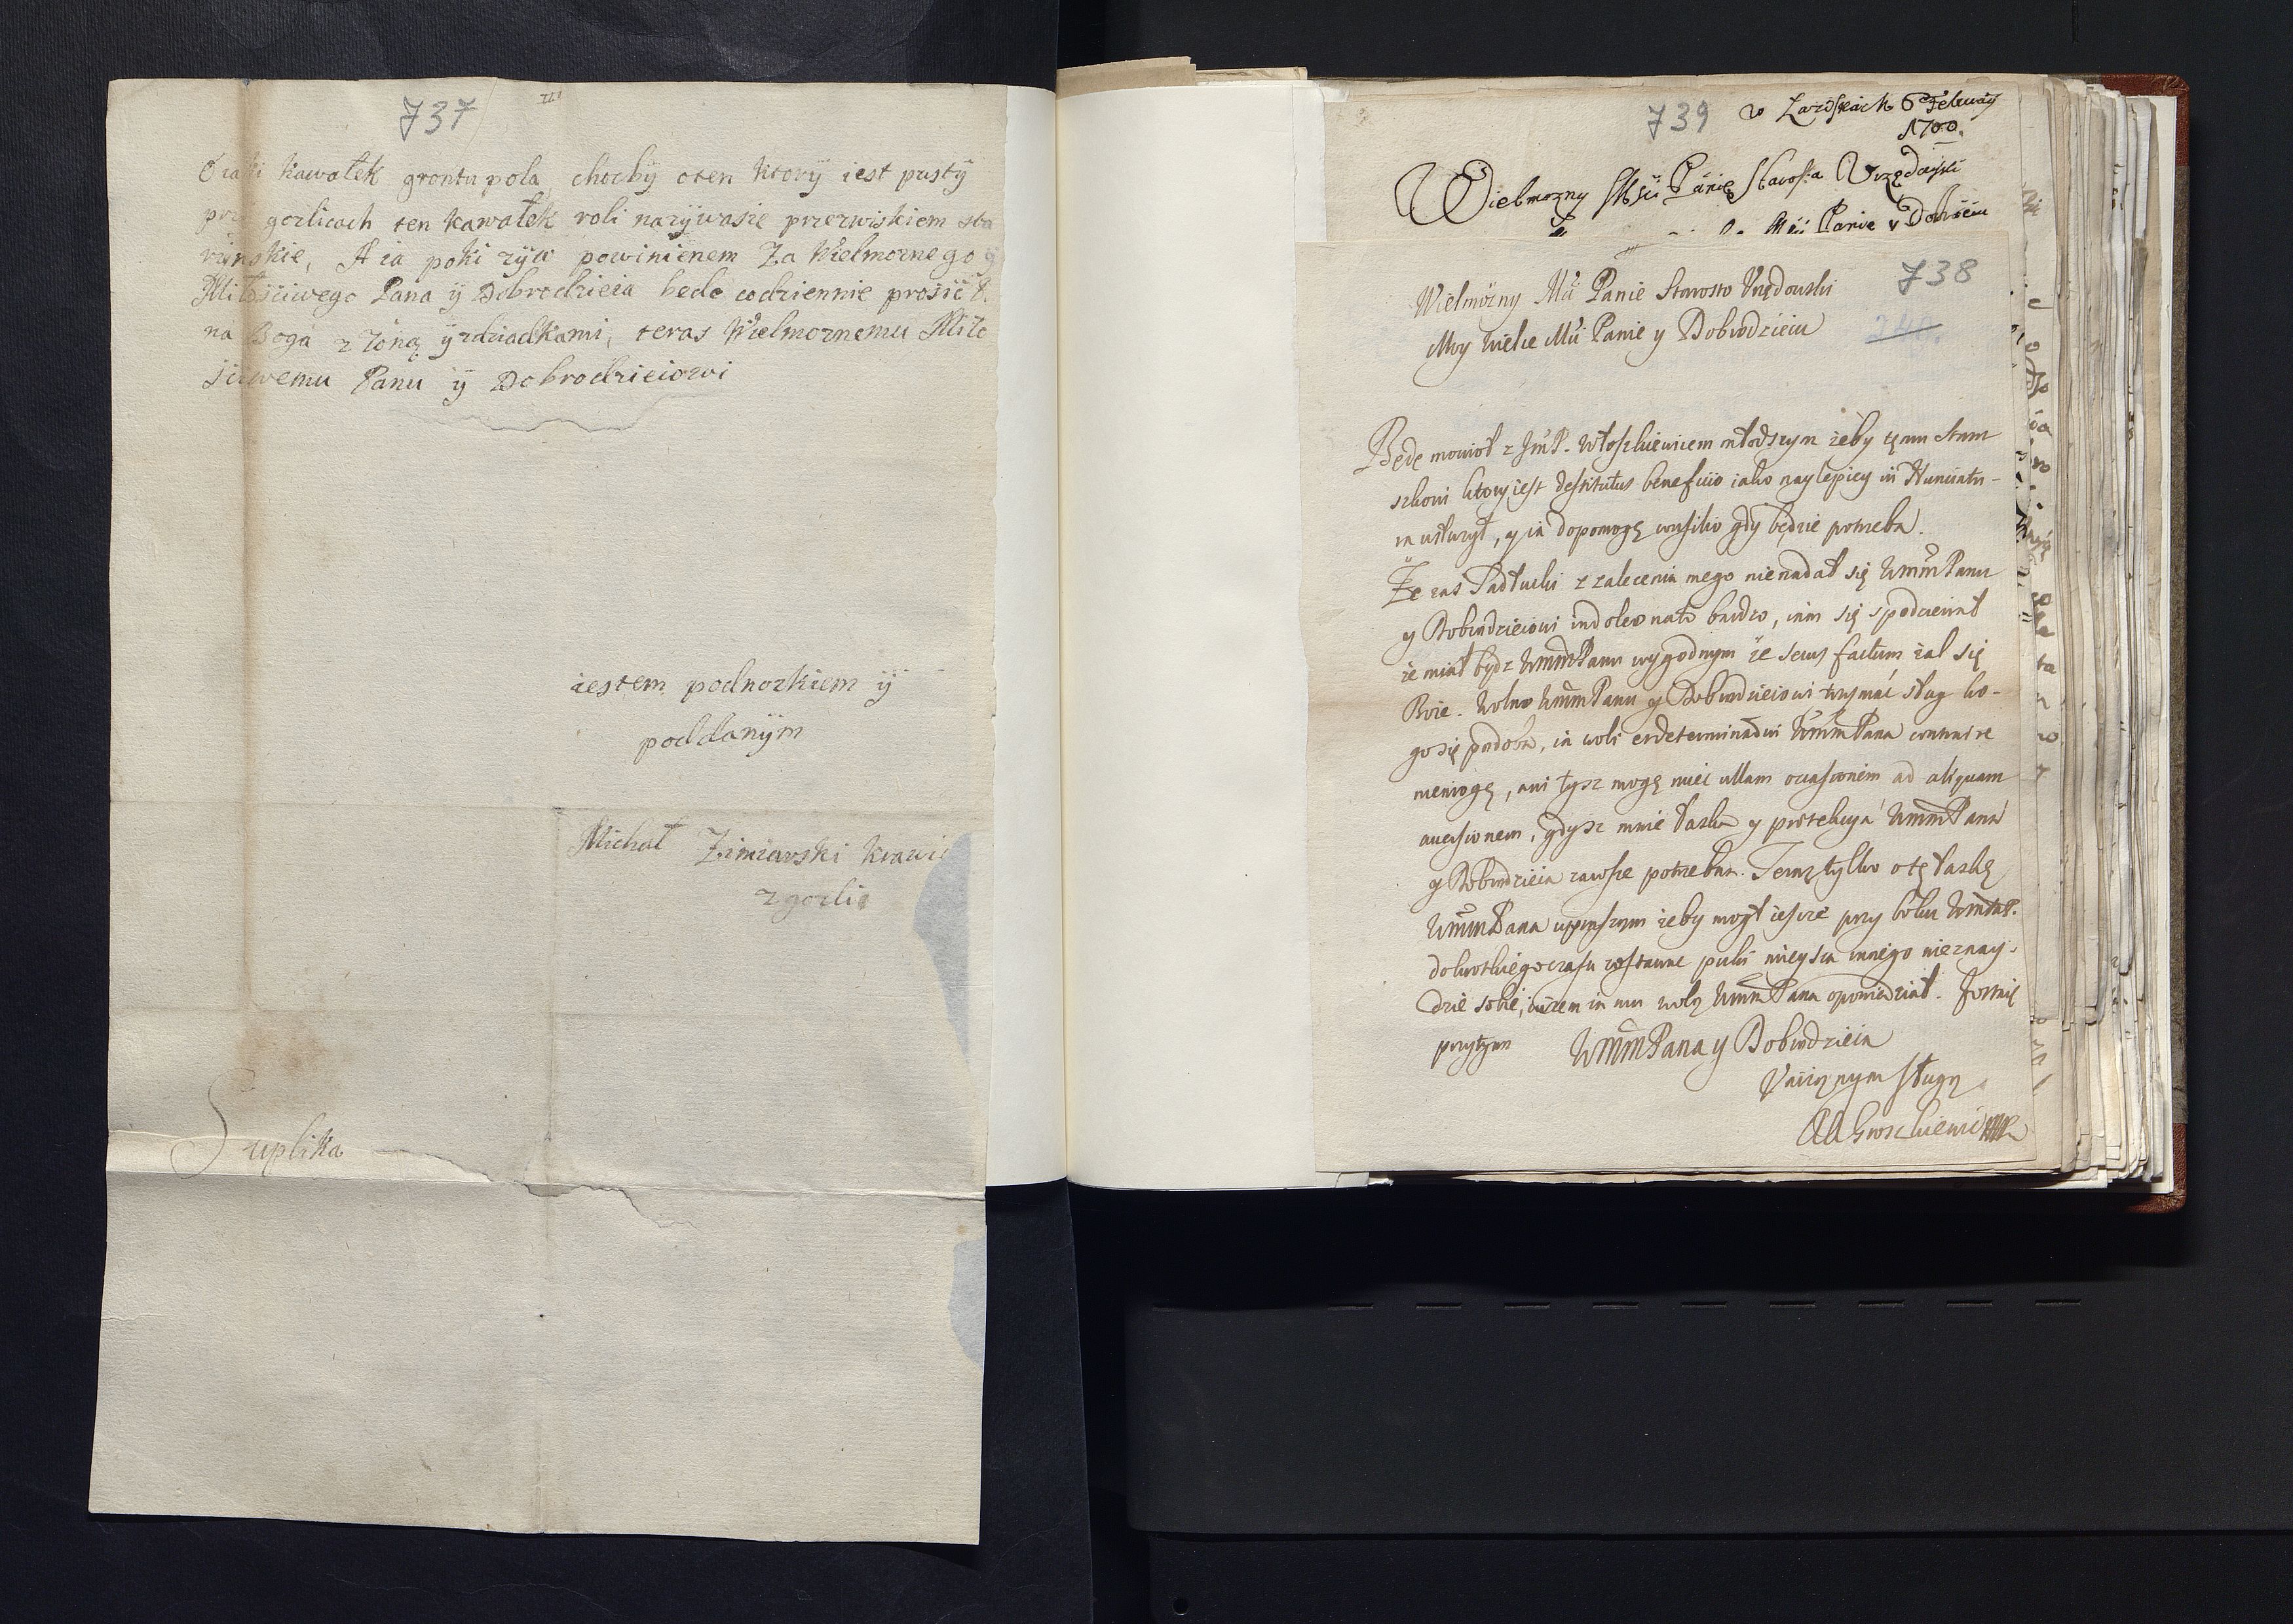 737
O iaki kawałek grontu pola, choćby oten ktorÿ iest pustÿ
przÿ gorlicach ten kawałek roli nazÿwasie przezwiskiem sta
A ia poki zÿw powinienem Za Wielmoznego ÿ
Miłosciwego Pana ÿ Dobrodzieia bede codziennie prosić P.
na Boga z zoną ÿ zdziadkami, teras Wielmoznemu Miło
sciwemu Panu ÿ Dobrodzieiowi
iestem podnozkiem ÿ
poddanÿm
Michał Zimiarski krawi
z gorlic
Suplika
739
w 6 Februarÿ
1700.
Wielmozny Mści Panie Starosta Vrzędowski
Panie y Dobrodzieiu
738
Wielmożny Mći Panie Starosto Vrzędowski
Moy Wielce Mći Panie y Dobrodzieiu
240.
Będę mowił z JmP. Włoszkiewicem młodszym zeby temu Staru
szkowi ktory iest destitutus beneficio iako naylepiey in Nunciatu-
ra usłuzył, y ia dopomogę consilio gdy będzie potrzeba.
Ze zas z zalecenia mego nienadał się WmmPanu
y Dobrodzieiowi indoleo na to bardzo, iam się spodziewał
ze miał bydz WmmPanu wygodnym ze secus factum zal się
Boze. Wolno WmmPanu y Dobrodzieiowi trzymac sług ko-
go się podoba, ia woli et determinacÿi WmmPana
niemogę, ani tysz mogę miec ullam occasionem ad aliquam
aversionem, gdysz mnie łaska y protekcya WmmPana
y Dobrodzieia zawsze potrzebna. Teraz tylko o tę łaskę
WmmPana upraszam zeby mogł iescze przy boku WmmP.
do krotkiego czasu zostawac puki mieysca innego nieznay-
dzie sobie, iuzem ia mu wolą WmmPana opowiedział. Zostaię
przytym WmmPana y Dobrodzieia
Vnizonym sługą